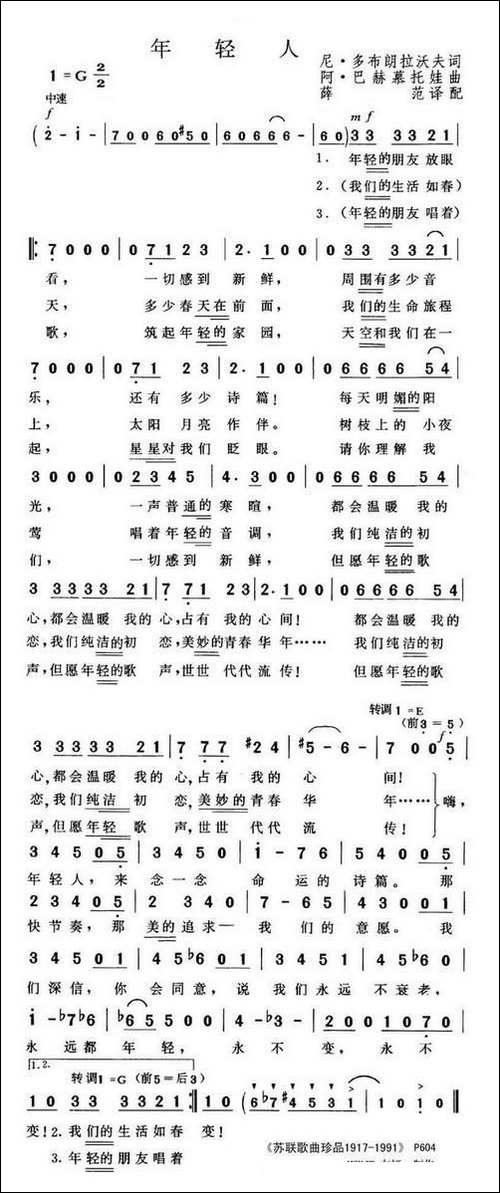 年 轻 人
1=G 2/2
尼·多布朗拉沃夫词
阿·巴赫慕托娃曲
薛 范译配
中速
f
mf
( 2̇ - 1̇ - | 7 0 0 6 0 #5 0 | 6 0 6 6 6 - | 6 0 ) 3 3 3 3 2 1 |
1. 年轻的朋友 放眼
2.(我们的生活 如春)
3.(年轻的朋友 唱着)
‖: 7 0 0 0 | 0 7 1 2 3 | 2 · 1 0 0 | 0 3 3 3 3 2 1 |
看, 一切感到 新鲜, 周围有多少音
天, 多少春天在前面, 我们的生命旅程
歌, 筑起年轻的家园, 天空和我们在一
7 0 0 0 | 0 7 1 2 3 | 2 · 1 0 0 | 0 6 6 6 6 5 4 |
乐, 还有多少诗篇! 每天明媚的阳
上, 太阳月亮作伴。 树枝上的小夜
起, 星星对我们眨眼。 请你理解我
3 0 0 0 | 0 2 3 4 5 | 4 · 3 0 0 | 0 6 6 6 6 5 4 |
光, 一声普通的寒暄, 都会温暖 我的
莺 唱着年轻的音调, 我们纯洁的初
们, 一切感到新鲜, 但愿年轻的歌
3 3 3 3 3 2 1 | 7 7 1 2 3 | 2 · 1 0 0 | 0 6 6 6 6 5 4 |
心,都会温暖 我的心,占有 我的心间! 都会温暖 我的
恋,我们纯洁的初 恋,美妙的青春华年…… 我们纯洁的初
声,但愿年轻的歌 声,世世代代流传! 但愿年轻的歌
转调1=E
(前3=5)
f
3 3 3 3 3 2 1 | 7 7 7 7 #2 4 | #5 - 6 - | 7 0 0 5 |
心,都会温暖 我的心,占有 我的 心 间!
恋,我们纯洁 初 恋,美妙的青春 华 年…… 嗨,
声,但愿年轻 歌 声,世世 代代 流 传!
3 4 5 0 0 5 | 3 4 5 0 | 1̇ - 7 6 | 5 4 0 0 5 |
年轻人, 来 念一念 命 运的 诗篇。 那
2 3 4 0 0 5 | 2 3 4 0 | 7 - 6 5 | 4 3 0 0 1 |
快节奏, 那 美的追求— 我 们的 意愿。 我
3 4 5 0 1 | 4 5 ♭6 0 1 | 4 5 ♭6 0 1 | ♭7 ♭6 0 |
们深信, 你 会同意, 说 我们永远 不衰老,
1̇ - ♭7 ♭6 | ♭6 5 5 0 0 | 4 - ♭3 - | 2 0 0 1 0 7 0 |
永 远都 年轻, 永 不 变, 永 不
1.2.
转调1=G (前5=后3)
1 0 3 3 3 3 2 1 :‖ 1 0 ( 6 ♭7 4 3 4 5 | 6 ) 0 1 0 ‖
变! 2. 我们的生活如春 变!
3. 年轻的朋友唱着
《苏联歌曲珍品1917-1991》 P604